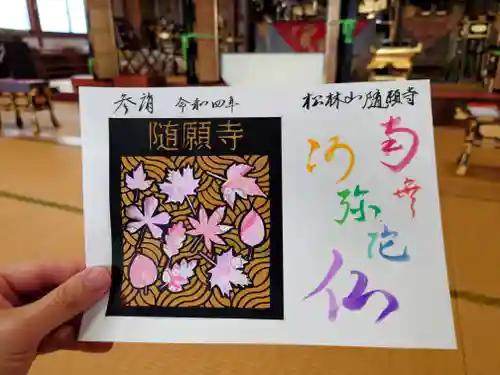 参詣 令和四年
随願寺
松林山随願寺
南無
阿弥陀
仏